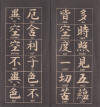 多時照見五蘊
皆空度一切苦
厄舍利子色不
異空空不異色